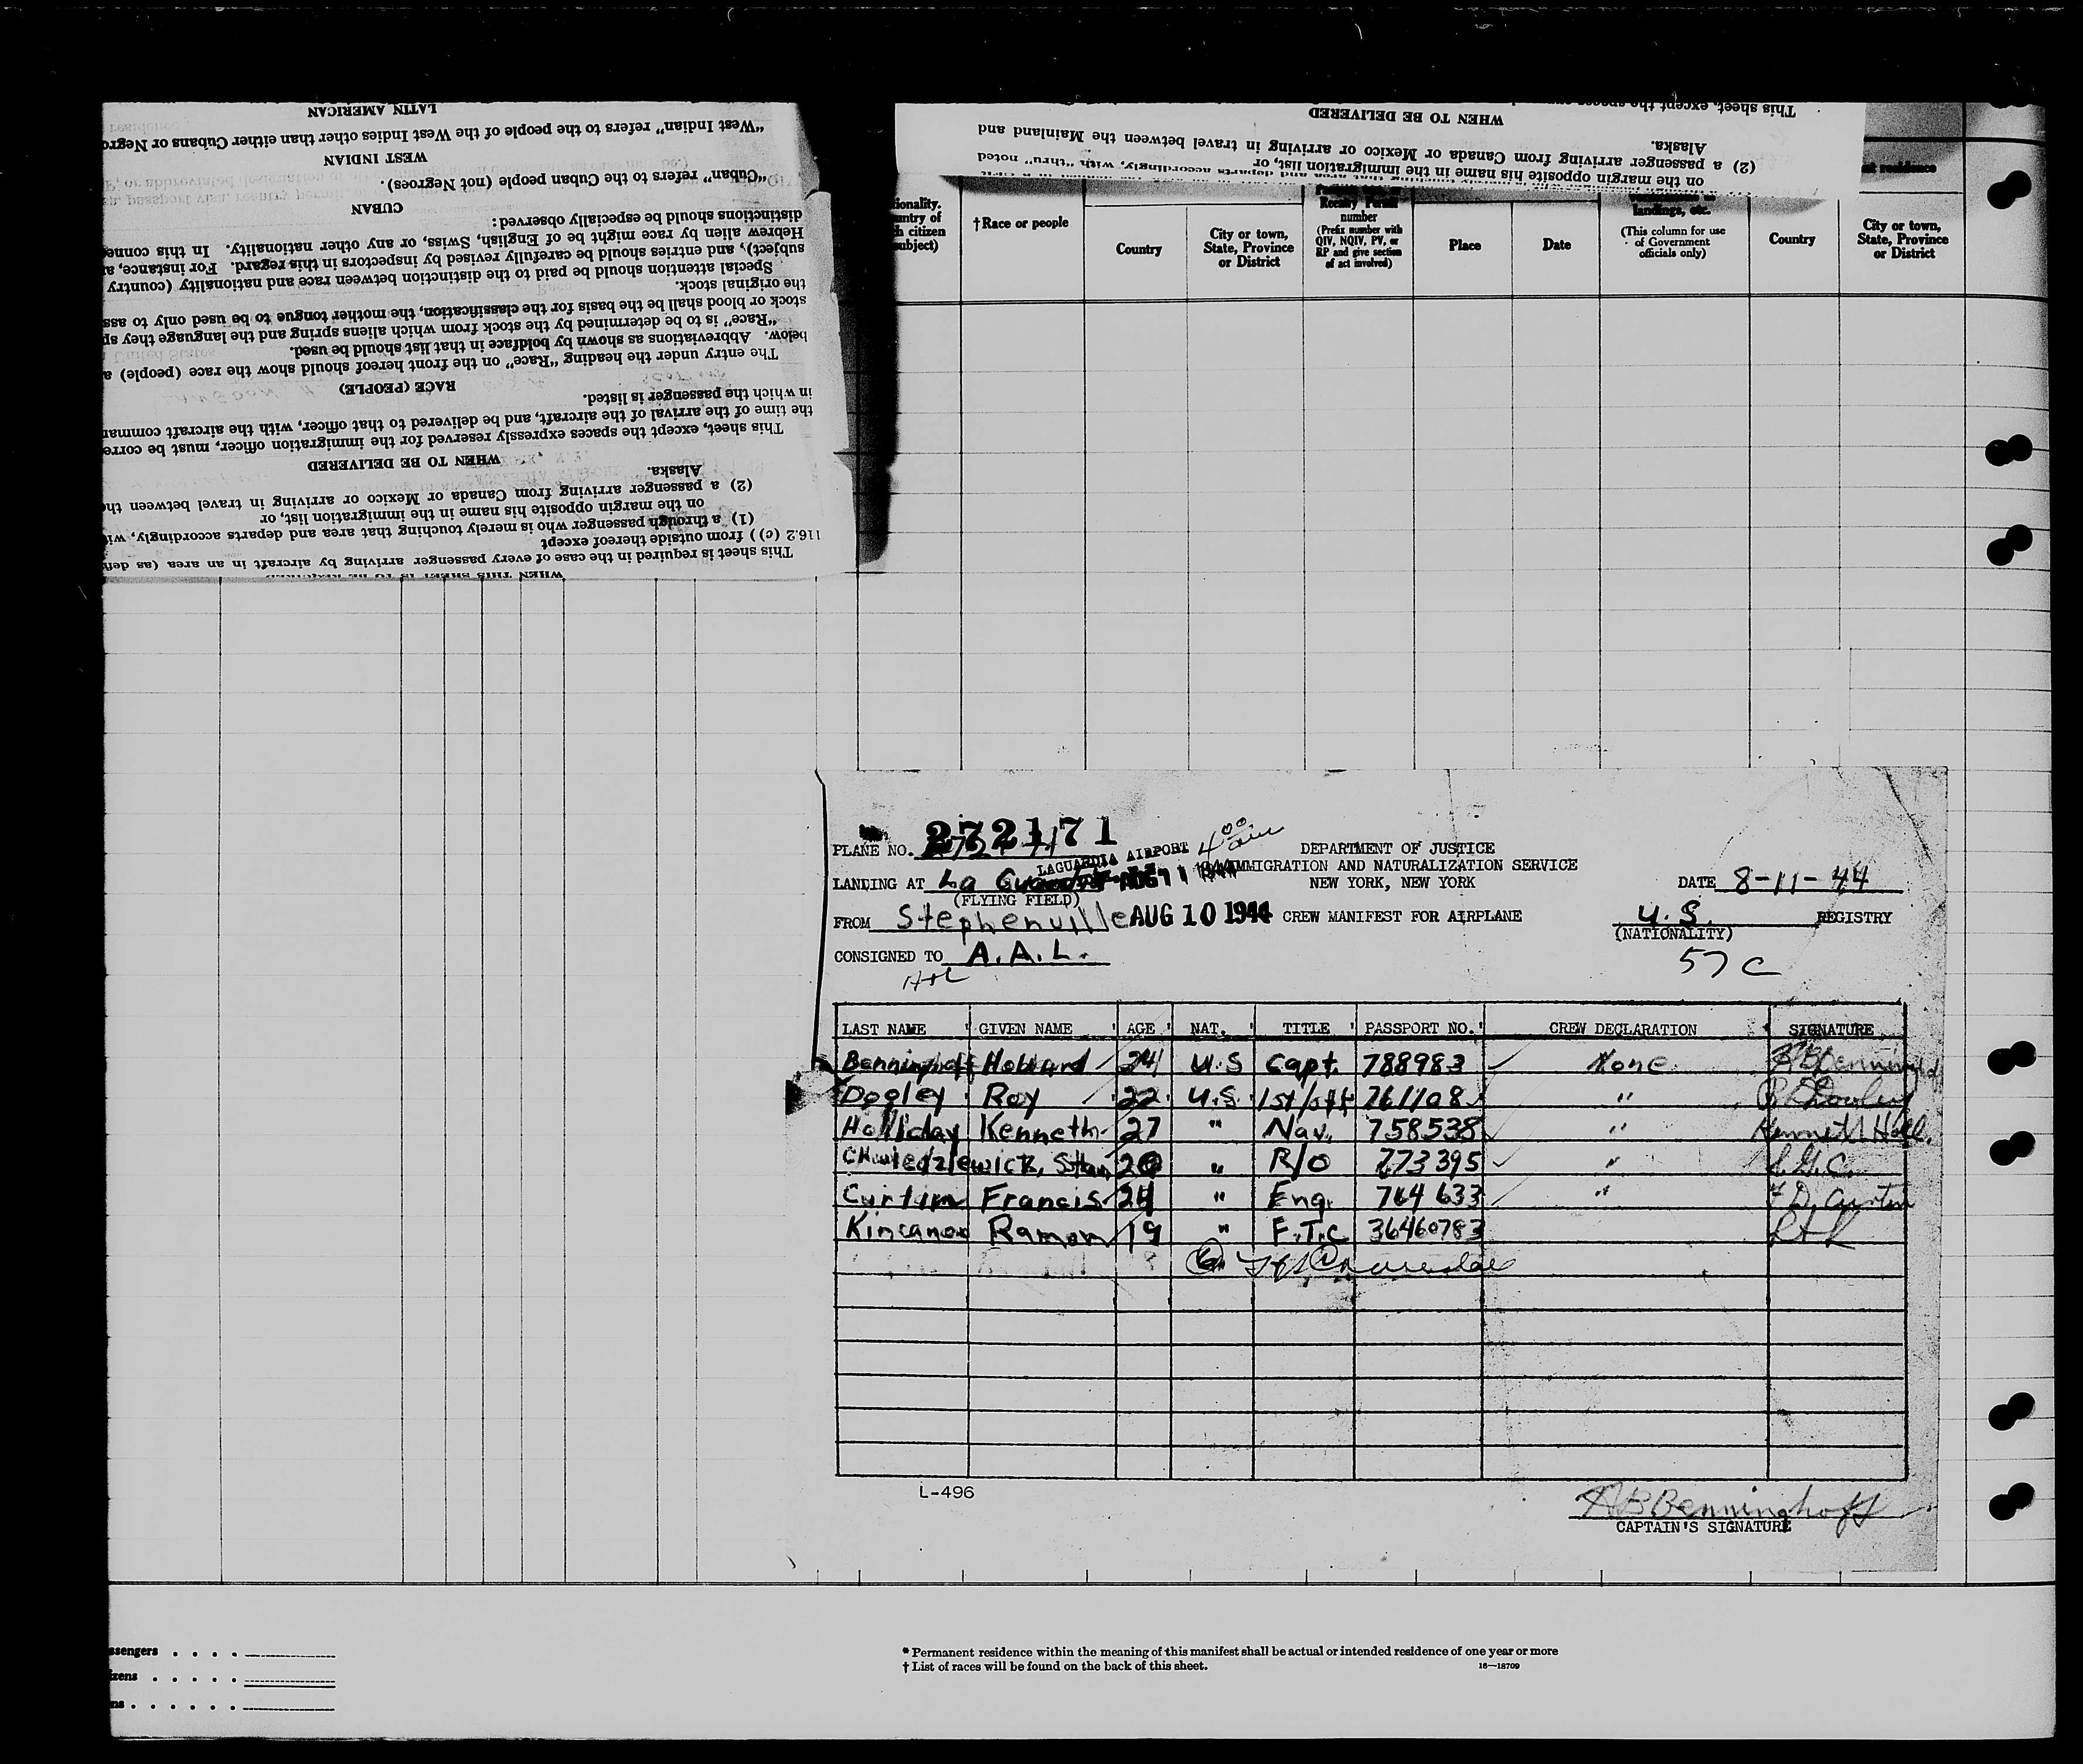 LATIN AMERICAN
"West Indian" refers to the people of the West Indies other than either Cubans or Negro
WEST INDIAN
"Cuban" refers to the Cuban people (not Negroes).
CUBAN
distinctions should be especially observed:
Hebrew alien by race might be of English, Swiss, or any other nationality. In this conne
subject), and entries should be carefully revised by inspectors in this regard. For instance, a
Special attention should be paid to the distinction between race and nationality (country
the original stock.
stock or blood shall be the basis for the classification, the mother tongue to be used only to ass
"Race" is to be determined by the stock from which aliens spring and the language they sp
below. Abbreviations as shown by boldface in that list should be used.
The entry under the heading "Race" on the front hereof should show the race (people) a
RACE (PEOPLE)
in which the passenger is listed.
the time of the arrival of the aircraft, and be delivered to that officer, with the aircraft comman
This sheet, except the spaces expressly reserved for the immigration officer, must be corre
WHEN TO BE DELIVERED
Alaska.
(2) a passenger arriving from Canada or Mexico or arriving in travel between the
on the margin opposite his name in the immigration list, or
(1) a through passenger who is merely touching that area and departs accordingly, wi
116.2 (c)) from outside thereof except
This sheet is required in the case of every passenger arriving by aircraft in an area (as defi
WHEN THIS SHEET IS TO BE REQUIRED
This sheet, except the spaces
WHEN TO BE DELIVERED
Alaska.
(2) a passenger arriving from Canada or Mexico or arriving in travel between the Mainland and
on the margin opposite his name in the immigration list, or
and departs accordingly, with "thru" noted
ionality.
untry of
h citizen
ubject)
† Race or people
Country
City or town,
State, Province
or District
Reentry Permit
number
(Prefix number with
QIV, NQIV, PV, or
RP and give section
of act involved)
Place
Date
landings, etc.
(This column for use
of Government
officials only)
residence
Country
City or town,
State, Province
or District
PLANE NO. 272171
LAGUARDIA AIRPORT 4 00 am
DEPARTMENT OF JUSTICE
IMMIGRATION AND NATURALIZATION SERVICE
NEW YORK, NEW YORK
LANDING AT La Guardia AUG 11 1944
(FLYING FIELD)
DATE 8-11-44
FROM Stephenville AUG 10 1944 CREW MANIFEST FOR AIRPLANE
U.S. REGISTRY
(NATIONALITY)
CONSIGNED TO A.A.L.
57 C
LAST NAME GIVEN NAME AGE NAT. TITLE PASSPORT NO. CREW DECLARATION SIGNATURE
Benninghoff Hobard 24 U.S Capt. 788983 None
Dogley Roy 22 U.S. 1st/off 761108 "
Holliday Kenneth 27 " Nav. 758538 " Kenneth Holl.
Stan " R/O 773395 " S.G.C.
Curtin Francis 24 " Eng. 764 633 " F D. Curtin
Ramon 19 " F.T.C 36460783
L-496
H B Benninghoff
CAPTAIN'S SIGNATURE
ssengers . . . .
izens . . . . .
ns . . . . . .
* Permanent residence within the meaning of this manifest shall be actual or intended residence of one year or more
† List of races will be found on the back of this sheet.
16—18709